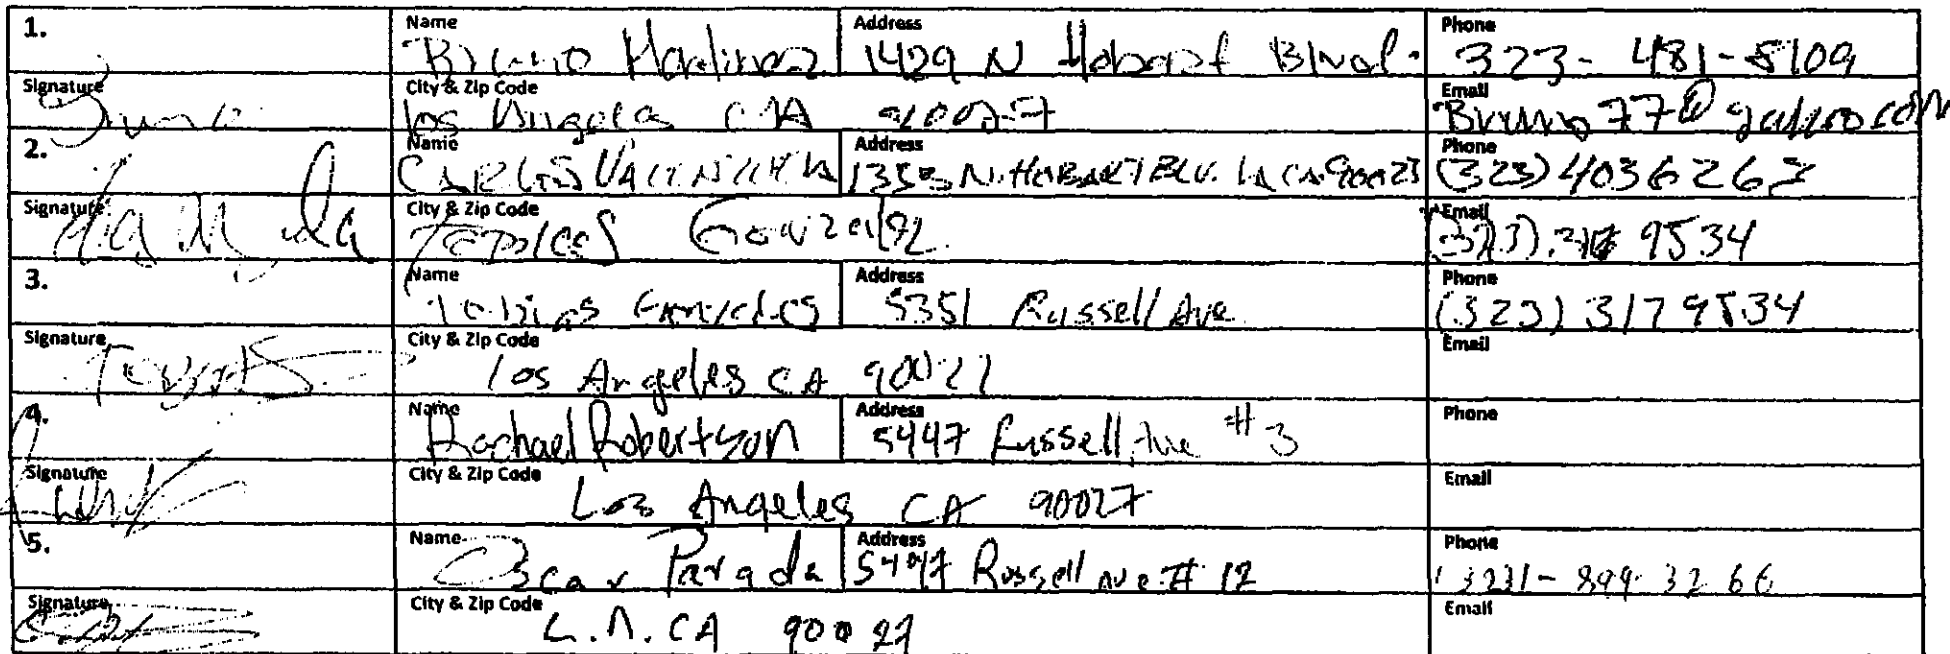 1. Name Bruno Martinez Address 1429 N Hobart Blvd. Phone 323-481-5109
Signature City & Zip Code Los Angeles CA 90027 Email
2. Name CARLOS Address 1353 N. HOBART BLV. LA CA 90023 Phone (323) 4036263
Signature City & Zip Code Gonzalez Email 9534
3. Name Tobias Address 5351 Russell Ave Phone (323) 3179534
Signature City & Zip Code Los Angeles CA 90027 Email
4. Name Rachael Robertson Address 5447 Russell Ave #3 Phone
Signature City & Zip Code Los Angeles CA 90027 Email
5. Name Oscar Parada Address 5447 Russell Ave # 12 Phone (323)-899-3266
Signature City & Zip Code L.A. CA 90027 Email